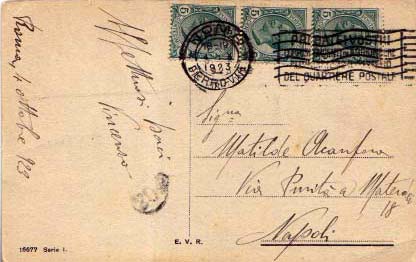 Roma, 4 ottobre 923
Affettuosi baci
Vincenzo
5
5
5
ROMA
1923
FERROVIA
DEL QUARTIERE POSTALE
Sig.na
Matilde Acanfora
Via Purità a Materdei
18
Napoli
E. V. R.
16677 Serie I.